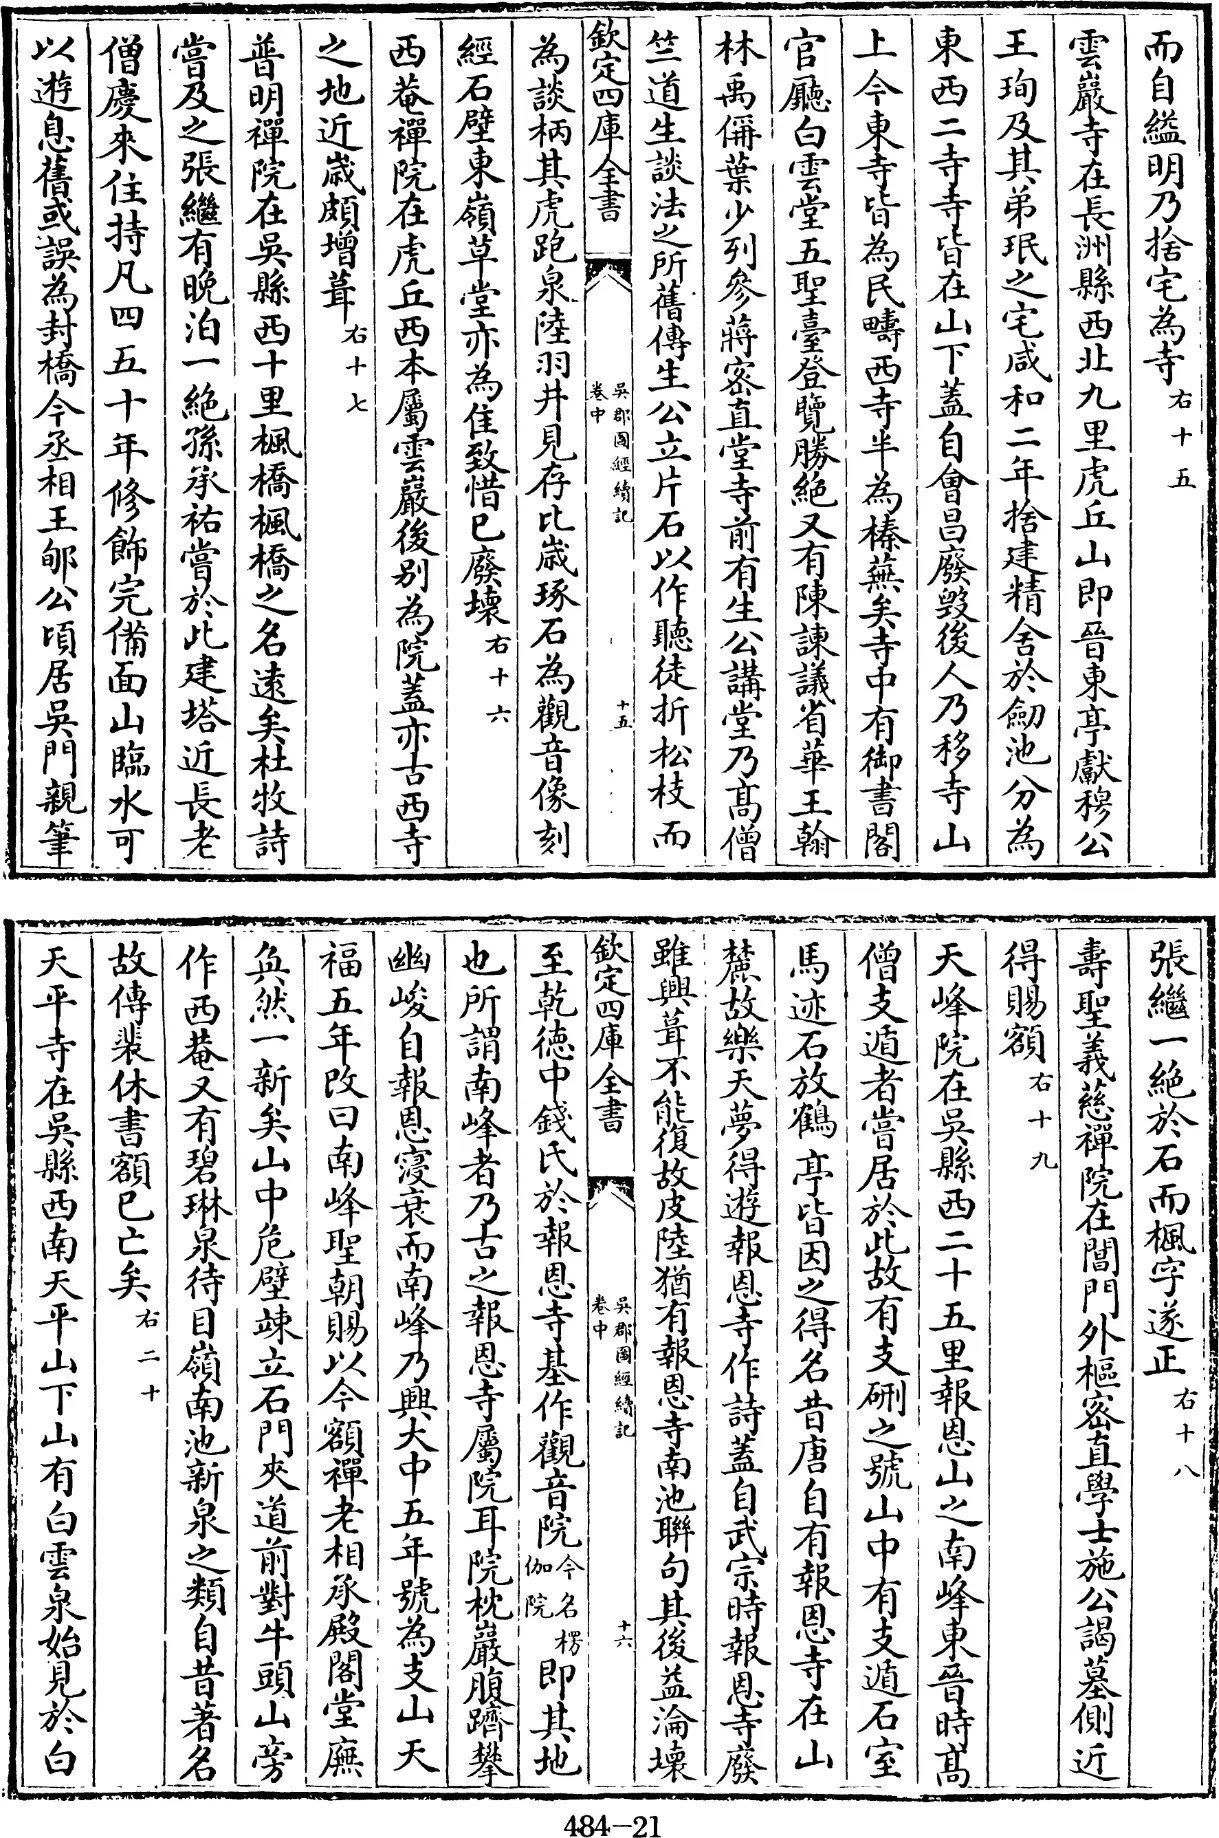 而自縊明乃捨宅為寺右十五
雲巖寺在長洲縣西北九里虎丘山即晉東亭獻穆公
王珣及其弟珉之宅咸和二年捨建精舍於劒池分為
東西二寺寺皆在山下蓋自會昌廢毀後人乃移寺山
上今東寺皆為民疇西寺半為榛蕪矣寺中有御書閣
官廳白雲堂五聖臺登覽勝絶又有陳諫議省華王翰
林禹偁葉少列參蔣密直堂寺前有生公講堂乃髙僧
竺道生談法之所舊傳生公立片石以作聽徒折松枝而
欽定四庫全書
吳郡圖經續記
卷中
十五
為談柄其虎跑泉陸羽井見存比嵗琢石為觀音像刻
經石壁東嶺草堂亦為隹致惜已廢壞右十六
西菴禪院在虎丘西本屬雲巖後别為院蓋亦古西寺
之地近嵗頗增葺右十七
普明禪院在吳縣西十里楓橋楓橋之名遠矣杜牧詩
嘗及之張繼有晚泊一絶孫承祐嘗於此建塔近長老
僧慶來住持凡四五十年修飾完備面山臨水可
以遊息舊或誤為封橋今丞相王郇公頃居吳門親筆
張繼一絶於石而楓字遂正右十八
壽聖義慈禪院在閶門外樞密直學士施公謁墓側近
得賜額右十九
天峰院在吳縣西二十五里報恩山之南峰東晉時髙
僧支遁者嘗居於此故有支硎之號山中有支遁石室
馬迹石放鶴亭皆因之得名昔唐自有報恩寺在山
麓故樂天夢得遊報恩寺作詩蓋自武宗時報恩寺廢
雖興葺不能復故皮陸猶有報恩寺南池聯句其後益淪壞
欽定四庫全書
吳郡圖經續記
卷中
十六
至乾徳中錢氏於報恩寺基作觀音院今名楞伽院即其地
也所謂南峰者乃古之報恩寺屬院耳院枕巖腹躋攀
幽峻自報恩寖衰而南峰乃興大中五年號為支山天
福五年改曰南峰聖朝賜以今額禪老相承殿閣堂廡
奐然一新矣山中危壁竦立石門夾道前對牛頭山旁
作西菴又有碧琳泉待月嶺南池新泉之類自昔著名
故傳裴休書額已亡矣右二十
天平寺在吳縣西南天平山下山有白雲泉始見於白
484-21